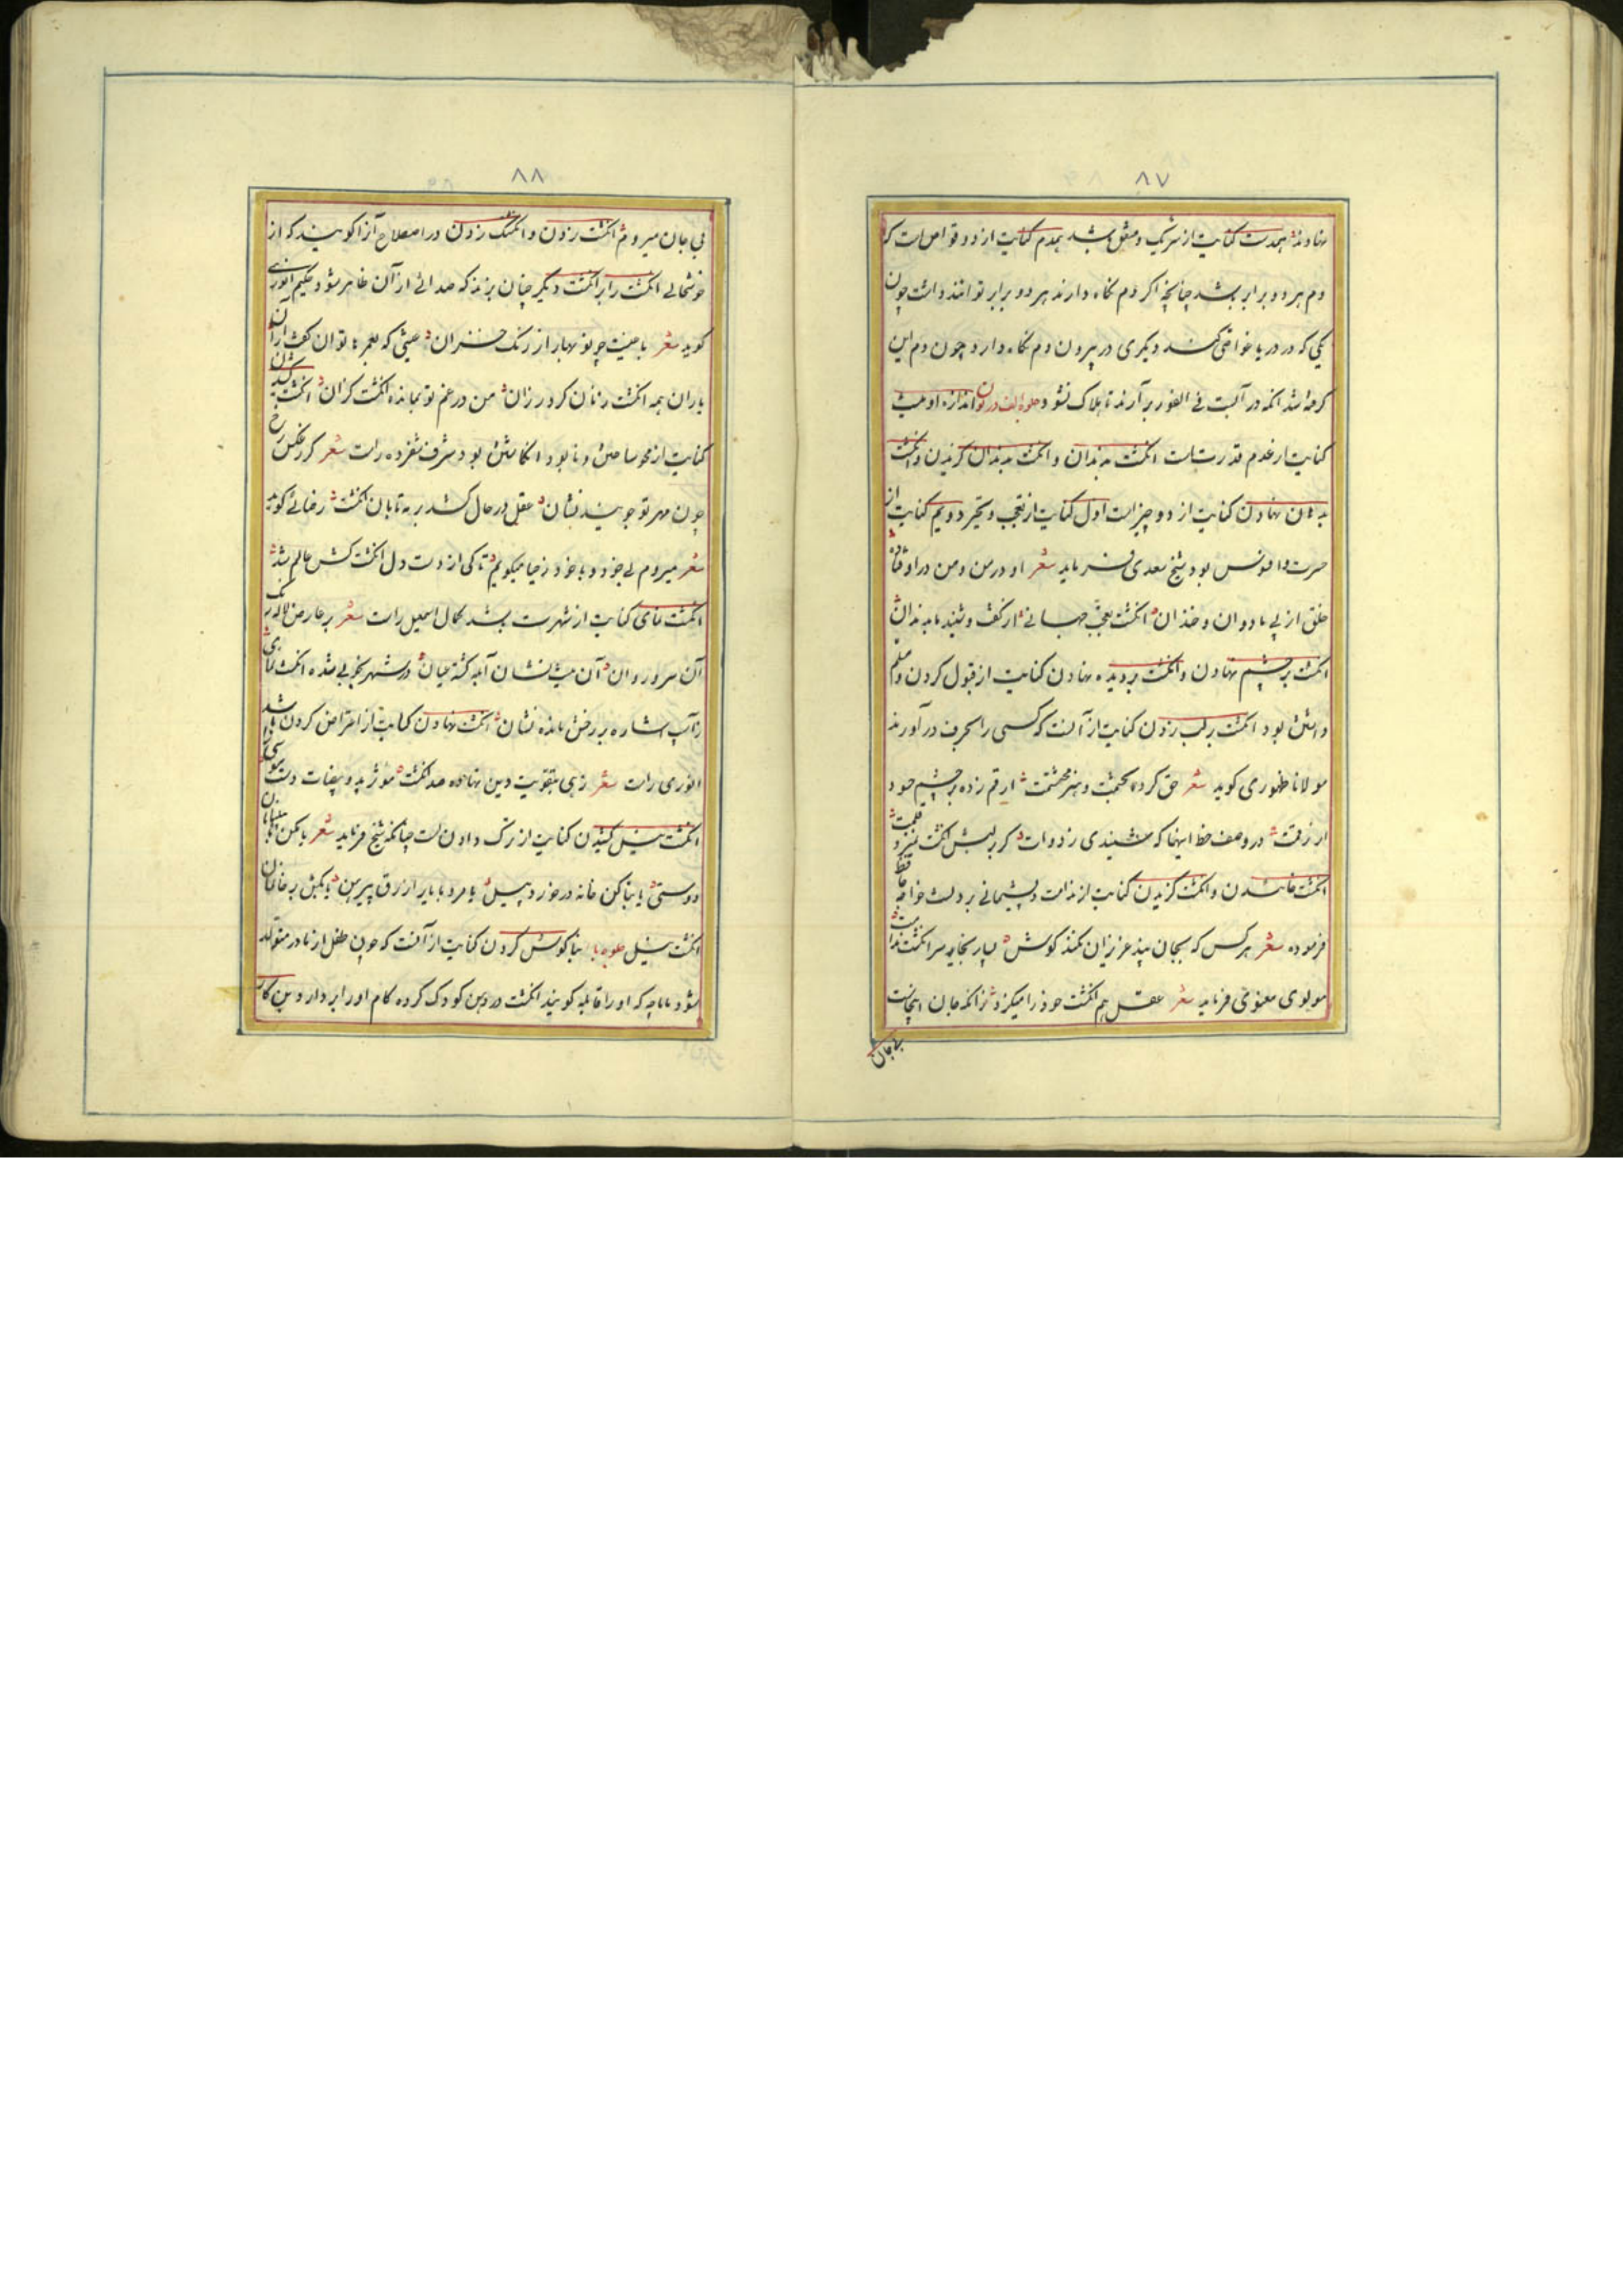 ۸۷
نهاوند همدست کنایت از شریک و متفق باشد همدم کنایت از دو غواص است که
دم هر دو برابر باشد چنانچه اگر دم نگاه دارند هر دو برابر توانند داشت چون
یکی که در دریا غواصی کند دیگری در بیرون دم نگاه دارد و چون دم این
کم باشد آنکه در آبست فی الفور بر آرند تا هلاک نشود جلوه الف در نون اندازه او نیست
کنایت از عدم قدرتست انکشت بدندان و انکشت بدندان کزیدن و انکشت
بدندان نهادن کنایت از دو چیز است اول کنایت از تعجب و تحیر دویم کنایت از
حسرت و افسوس بود شیخ سعدی فرماید شعر او در من و من در او فتاده
خلق از پی ما دوان و خندان انکشت تعجب جهانی از کفت و شنید ما بدندان
انکشت بر چشم نهادن و انکشت بر دیده نهادن کنایت از قبول کردن و مسلم
داشتن بود انکشت بر لب زدن کنایت از آنست که کسی را بحرف در آورند
مولانا ظهوری کوید شعر حق کرد بحکمت و هنر محتشمت ارقم زده بر چشم خود
از رقمت در وصف خط اینها که شنیدی زدوات کر بر لبش انکشت نمیزد قلمت
انکشت خاییدن و انکشت کزیدن کنایت از ندامت و پشیمانی بردنست خواجه حافظ
فرموده شعر هر کس که بجان پند عزیزان نکند کوش بسیار بخاید سر انکشت ندامت
مولوی معنوی فرماید شعر عقل هم انکشت خود را میکزد زانکه جان اینجاست
بی جان
۸۸
بی جان میرود انکشت زدن و انکشتک زدن در اصطلاح آنرا کویند که از
خوشحالی انکشت را بر انکشت دیکر چنان بزنند که صدائی از آن ظاهر شود حکیم انوری
کوید شعر با عیت چو نوبهار از رنک خزان عیشی که بعمرها توان کفت از آن
یاران همه انکشت زنان کرد رزان من در غم تو بمانده انکشت کزان انکشت کشیدن
کنایت از محو ساختن و نابود انکاشتن بود شرف شفروه راست شعر کر عکس رخ
چون مهر تو جویند نشان عقل در حال کشد بر مه تابان انکشت رضائی کوید
شعر میروم بی خود و با خود ز حیا میکویم تا کی از دست دل انکشت کش عالم شد
انکشت نمای کنایت از شهرت باشد کمال اسمعیل راست شعر بر عارض لاله رنک
آن سرو روان آن نیست نشان آبله کشته عیان در شهر بخوبی شده انکشت نمای
زآسیب اشاره بر رخش مانده نشان انکشت نهادن کنایت از اعتراض کردن باشد
انوری راست شعر زهی بتقویت دین نهاده صد انکشت موثر ید و بیضات دست موسی را
انکشت نیل کشیدن کنایت از ترک دادن است چنانکه شیخ فرماید شعر یا مکن با پیلبانان
دوستی یا بنا کن خانه در خورد پیل یا مرو با یار ازرق پیرهن یا بکش بر خانمان
انکشت نیل جلوه با بناکوش کردن کنایت از آنست که چون طفل از مادر متولد
شود ماماچه که او را قابله کویند انکشت در دهن کودک کرده کام او را بردارد و بین کار